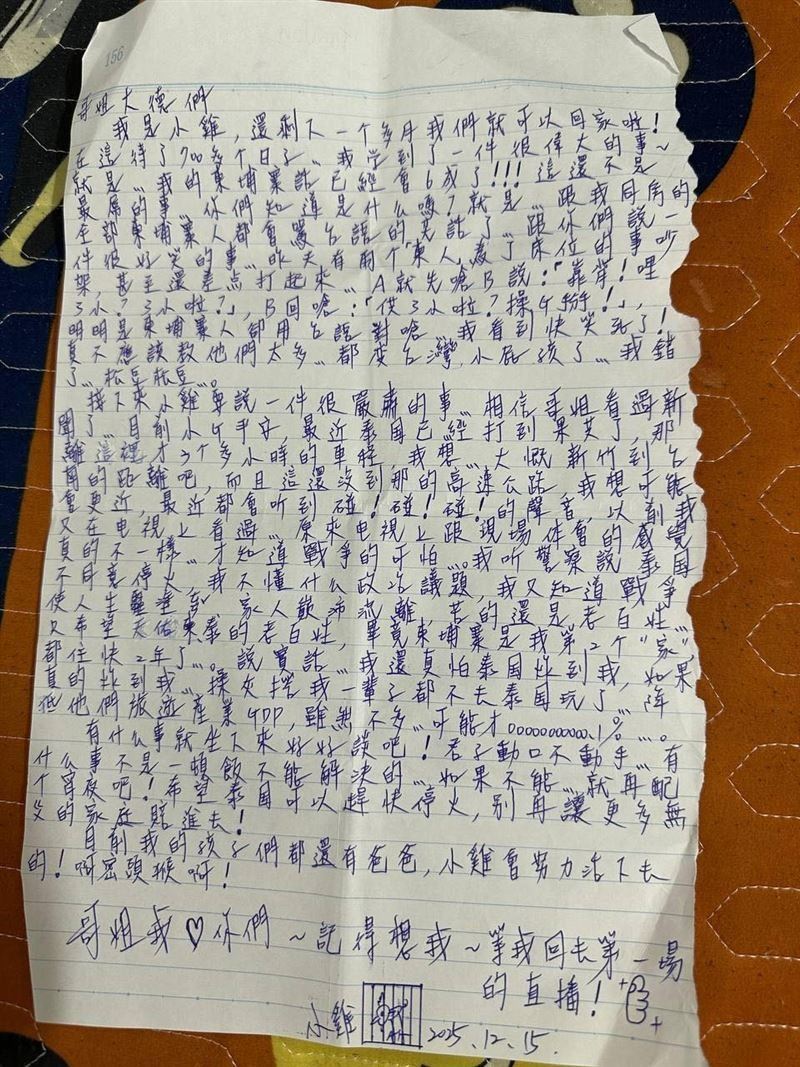 156
哥姐大德們
我是小雞,還剩下一個多月我們就可以回家啦!
在這待了700多個日子...我学到了一件很偉大的事~
就是...我的柬埔寨話已經會6成了!!!這還不是
最屌的事...你們知道是什么嗎?就是...跟我同房的
全部柬埔寨人都會罵台語的 話了...跟你們說一
件很好笑的事...昨天有兩个「柬人」為了床位的事吵
架,甚至還差点打起來...A就先嗆B說:「靠背!哩
3小?3小啦?」,B回嗆:「供3小啦?操G掰!」,
明明是柬埔寨人卻用台語對嗆...我看到快笑死了!
真不應該教他們太多...都变台灣小屁孩了...我錯
了...松豆松豆...。
接下來小雞要說一件很嚴肅的事...相信哥姐看過新
聞了...目前小G平安,最近泰国已經打到果艾了,那
離這裡才3个多小時的車程...我想...大慨新竹到台
南的路離吧,而且這還沒到那的高速公路...我想可能
會更近,最近都會听到碰!碰!碰!的聲音,以前我
又在电視上看過...原來电視上跟現場体會的感覺
真的不一樣...才知道戰爭的可怕...。我听警察說泰国
不同意停火,我不懂什么政治議題,我又知道戰爭
使人生靈塗炭、家人顛沛流離,苦的還是老百姓...
又希望天佑柬泰的老百姓,畢竟柬埔寨是我第2个"家",
都住快2年了...。說實話...我還真怕泰国炸到我,如果
真的炸到我...操 我一輩子都不去泰国玩了...降
低他們旅遊產業GDP,雖然不多...可能才0.000000001%...。
有什么事就坐下來好好談吧!君子動口不動手...有
什么事不是一頓飯不能解決的...如果不能...就再配
个宵夜吧!希望泰国可以趕快停火,別再讓更多無
的家庭賠進去!
目前我的孩子們都還有爸爸,小雞會努力活下去
的!啊 頭猴啊!
哥姐我♡你們~記得想我~等我回去第一場
的直播!
小雞 2025.12.15.